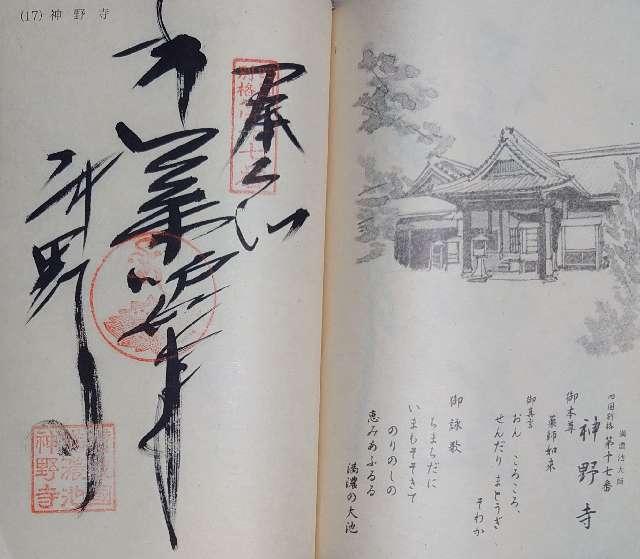 (17) 神野寺
奉
別格
本
薬師
神野寺
満濃池
神野寺
満濃池大師
四国別格 第十七番
神野寺
御本尊
薬師如来
御真言
おん ころころ、
せんだり まとうぎ
そわか
御詠歌
いまもそそぎて
のりのしの
恵みあふるる
満濃の大池